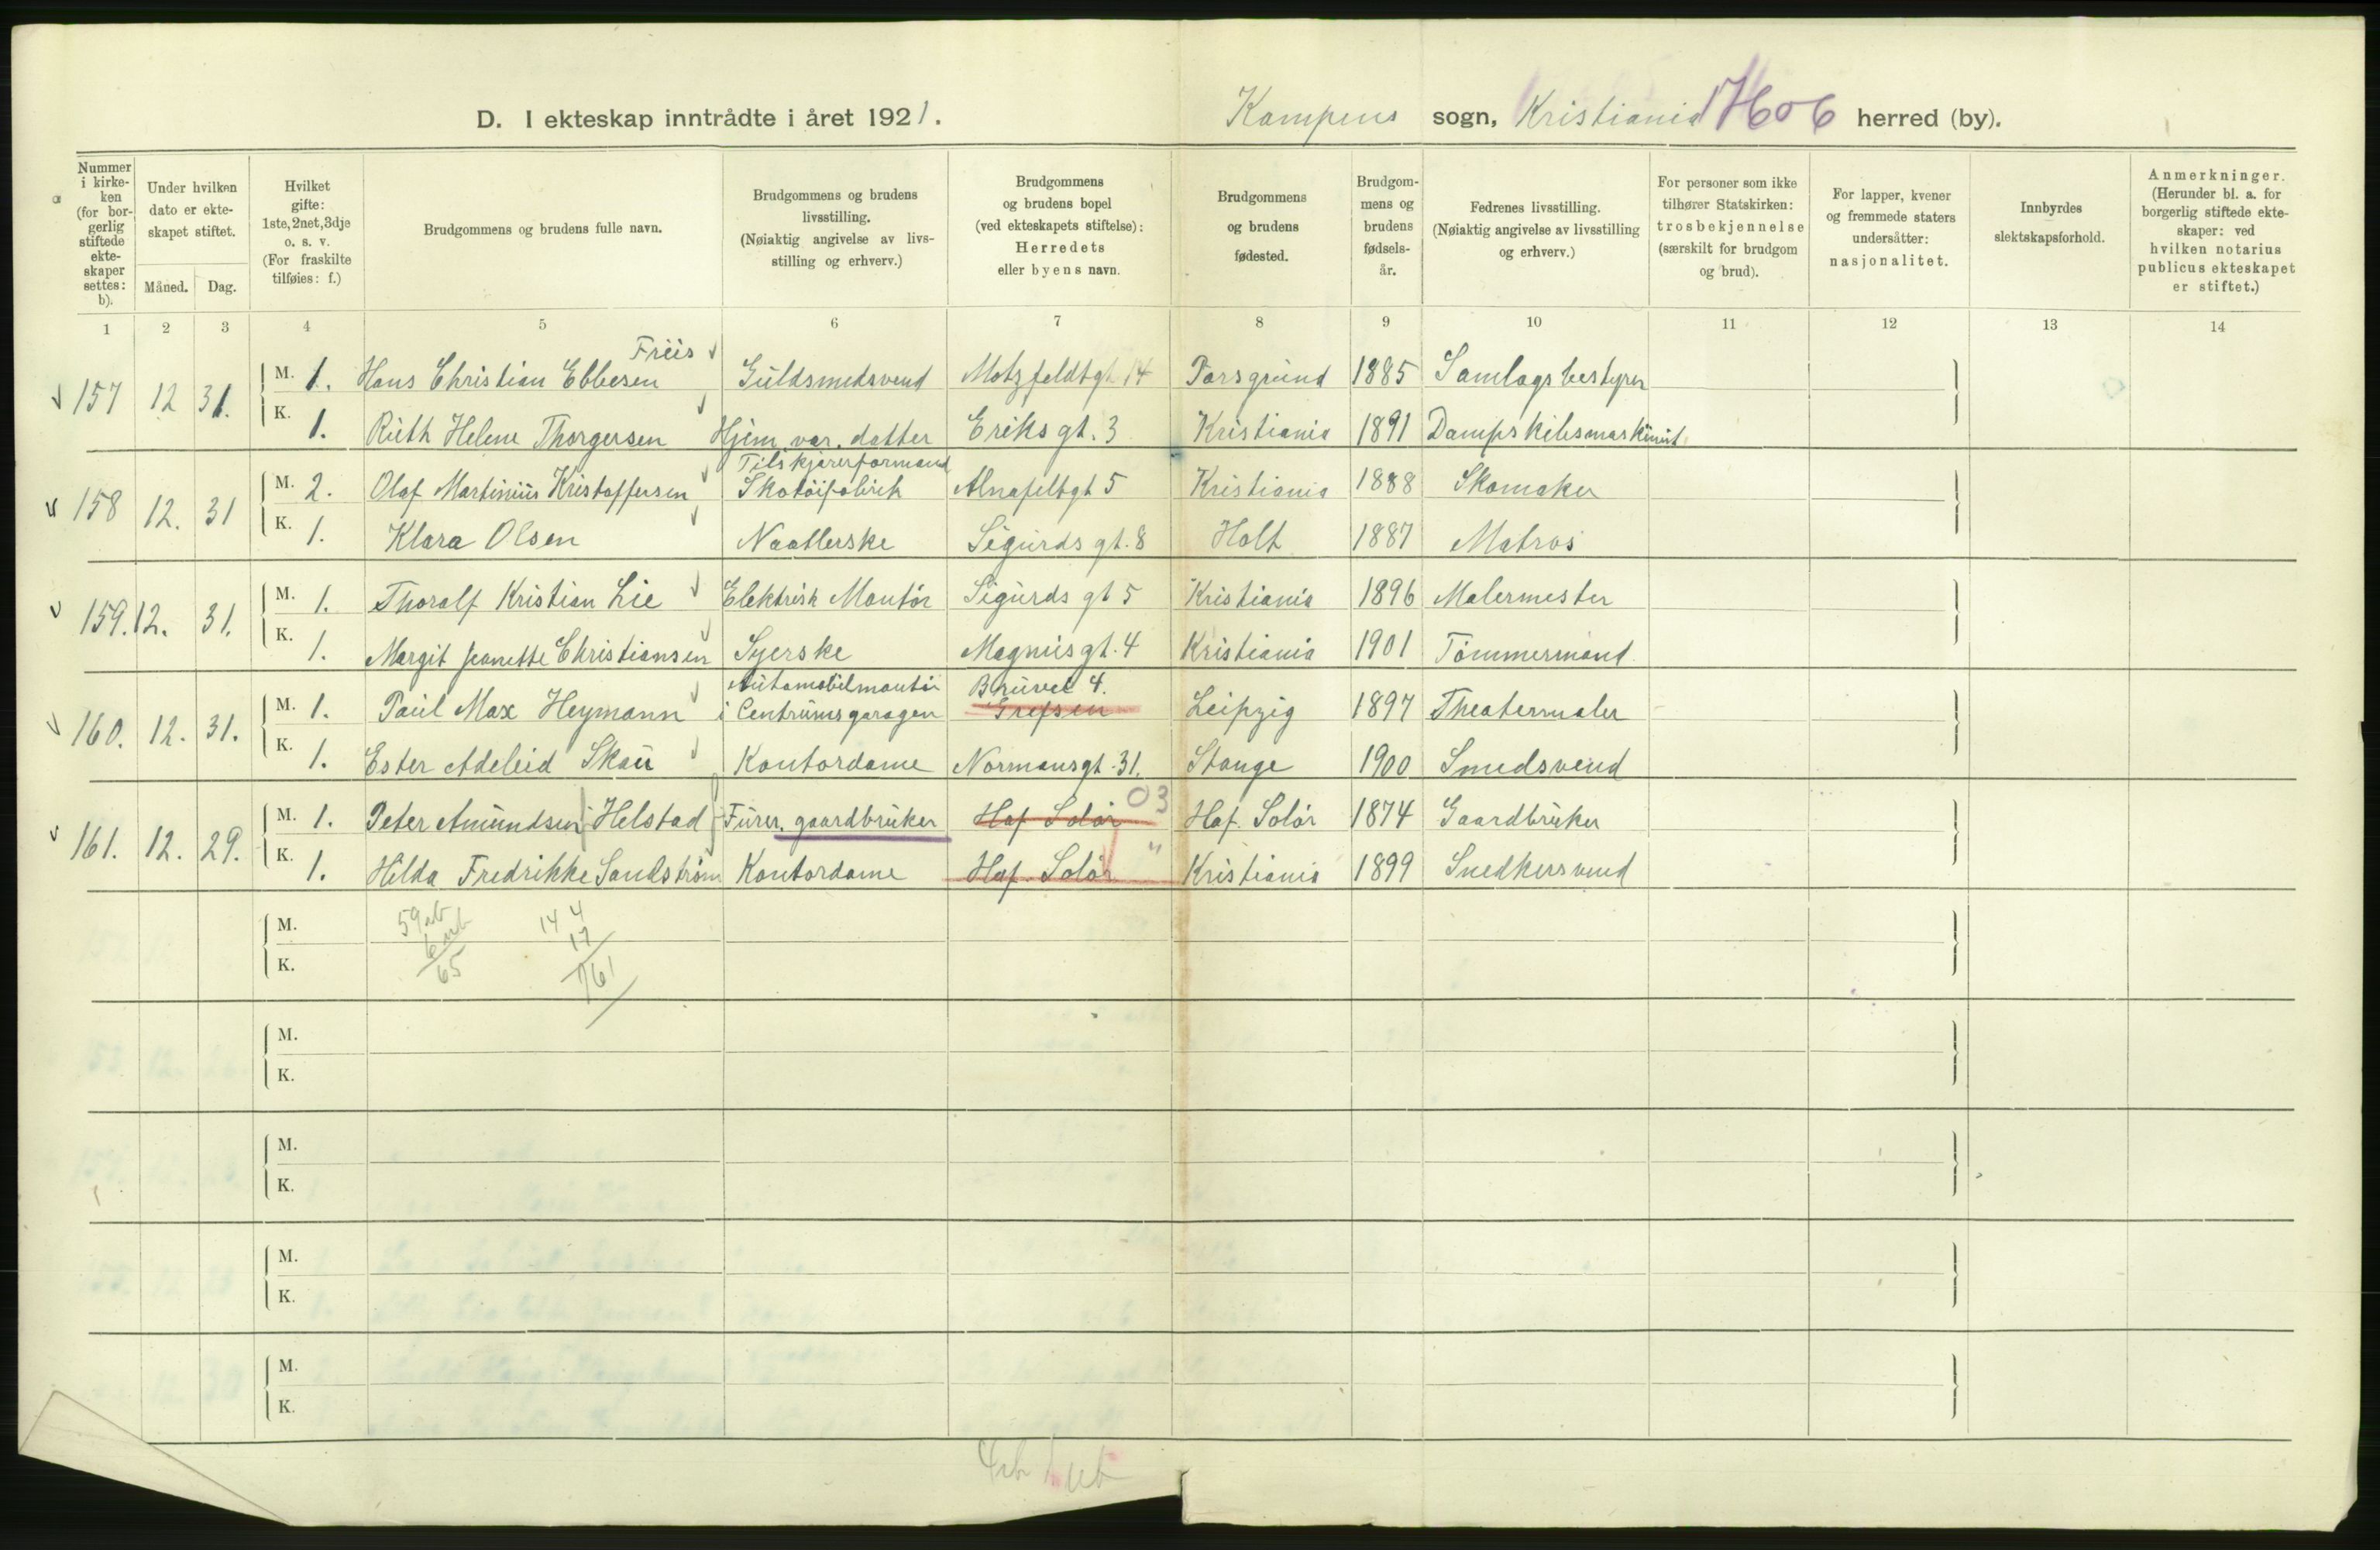 D. I ekteskap inntrådte i året 1921. Kampens sogn, Kristiania herred (by).
Nummer i kirke-ken (for bor-gerlig stiftede ekte-skaper settes: b).
Under hvilken dato er ekte-skapet stiftet.
Måned. Dag.
Hvilket gifte: 1ste, 2net, 3dje o. s. v. (For fraskilte tilføies: f.)
Brudgommens og brudens fulle navn.
Brudgommens og brudens livsstilling. (Nøiaktig angivelse av livs-stilling og erhverv.)
Brudgommens og brudens bopel (ved ekteskapets stiftelse): Herredets eller byens navn.
Brudgommens og brudens fødested.
Brudgom-mens og brudens fødsels-år.
Fedrenes livsstilling. (Nøiaktig angivelse av livsstilling og erhverv.)
For personer som ikke tilhører Statskirken: trosbekjennelse (særskilt for brudgom og brud).
For lapper, kvener og fremmede staters undersåtter: nasjonalitet.
Innbyrdes slektskapsforhold.
Anmerkninger. (Herunder bl. a. for borgerlig stiftede ekte-skaper: ved hvilken notarius publicus ekteskapet er stiftet.)
1 2 3 4 5 6 7 8 9 10 11 12 13 14
Friis
157 12 31. M. 1. Hans Christian Ebbesen Guldsmedsvend Motzfeldtgt 14 Porsgrund 1885 Samlagsbestyrer
K. 1. Ruth Helene Thorgersen Hjem. vær. datter Eriks gt. 3 Kristiania 1891 Dampskibsmaskinist
Tilskjærerformand
158 12. 31 M. 2. Olaf Martinius Kristoffersen Skotøifabrik Alnafeltgt 5 Kristiania 1888 Skomaker
K. 1. Klara Olsen Naatlerske Sigurds gt. 8 Holt 1887 Matros
159. 12. 31. M. 1. Thoralf Kristian Lie Elektrisk Montør Sigurds gt 5 Kristiania 1896 Malermester
K. 1. Margit Jeanette Christiansen Syerske Magnus gt. 4 Kristiania 1901 Tømmermand
Automobilmontør Bruvei 4.
160. 12. 31. M. 1. Paul Max Heymann i Centrumsgaragen Grefsen Leipzig 1897 Theatermaler
K. 1. Ester Adeleid Skau Kontordame Normansgt. 31. Stange 1900 Smedsvend
03
161. 12. 29. M. 1. Peter Amundsen Helstad Furer, gaardbruker Hof Solør Hof. Solør 1874 Gaardbruker
K. 1. Hilda Fredrikke Sandstrøm Kontordame Hof. Solør " Kristiania 1899 Snedkersvend
M. 59 ub 144
6 ub 17
K. 65 161
M.
K.
M.
K.
M.
K.
M.
K.